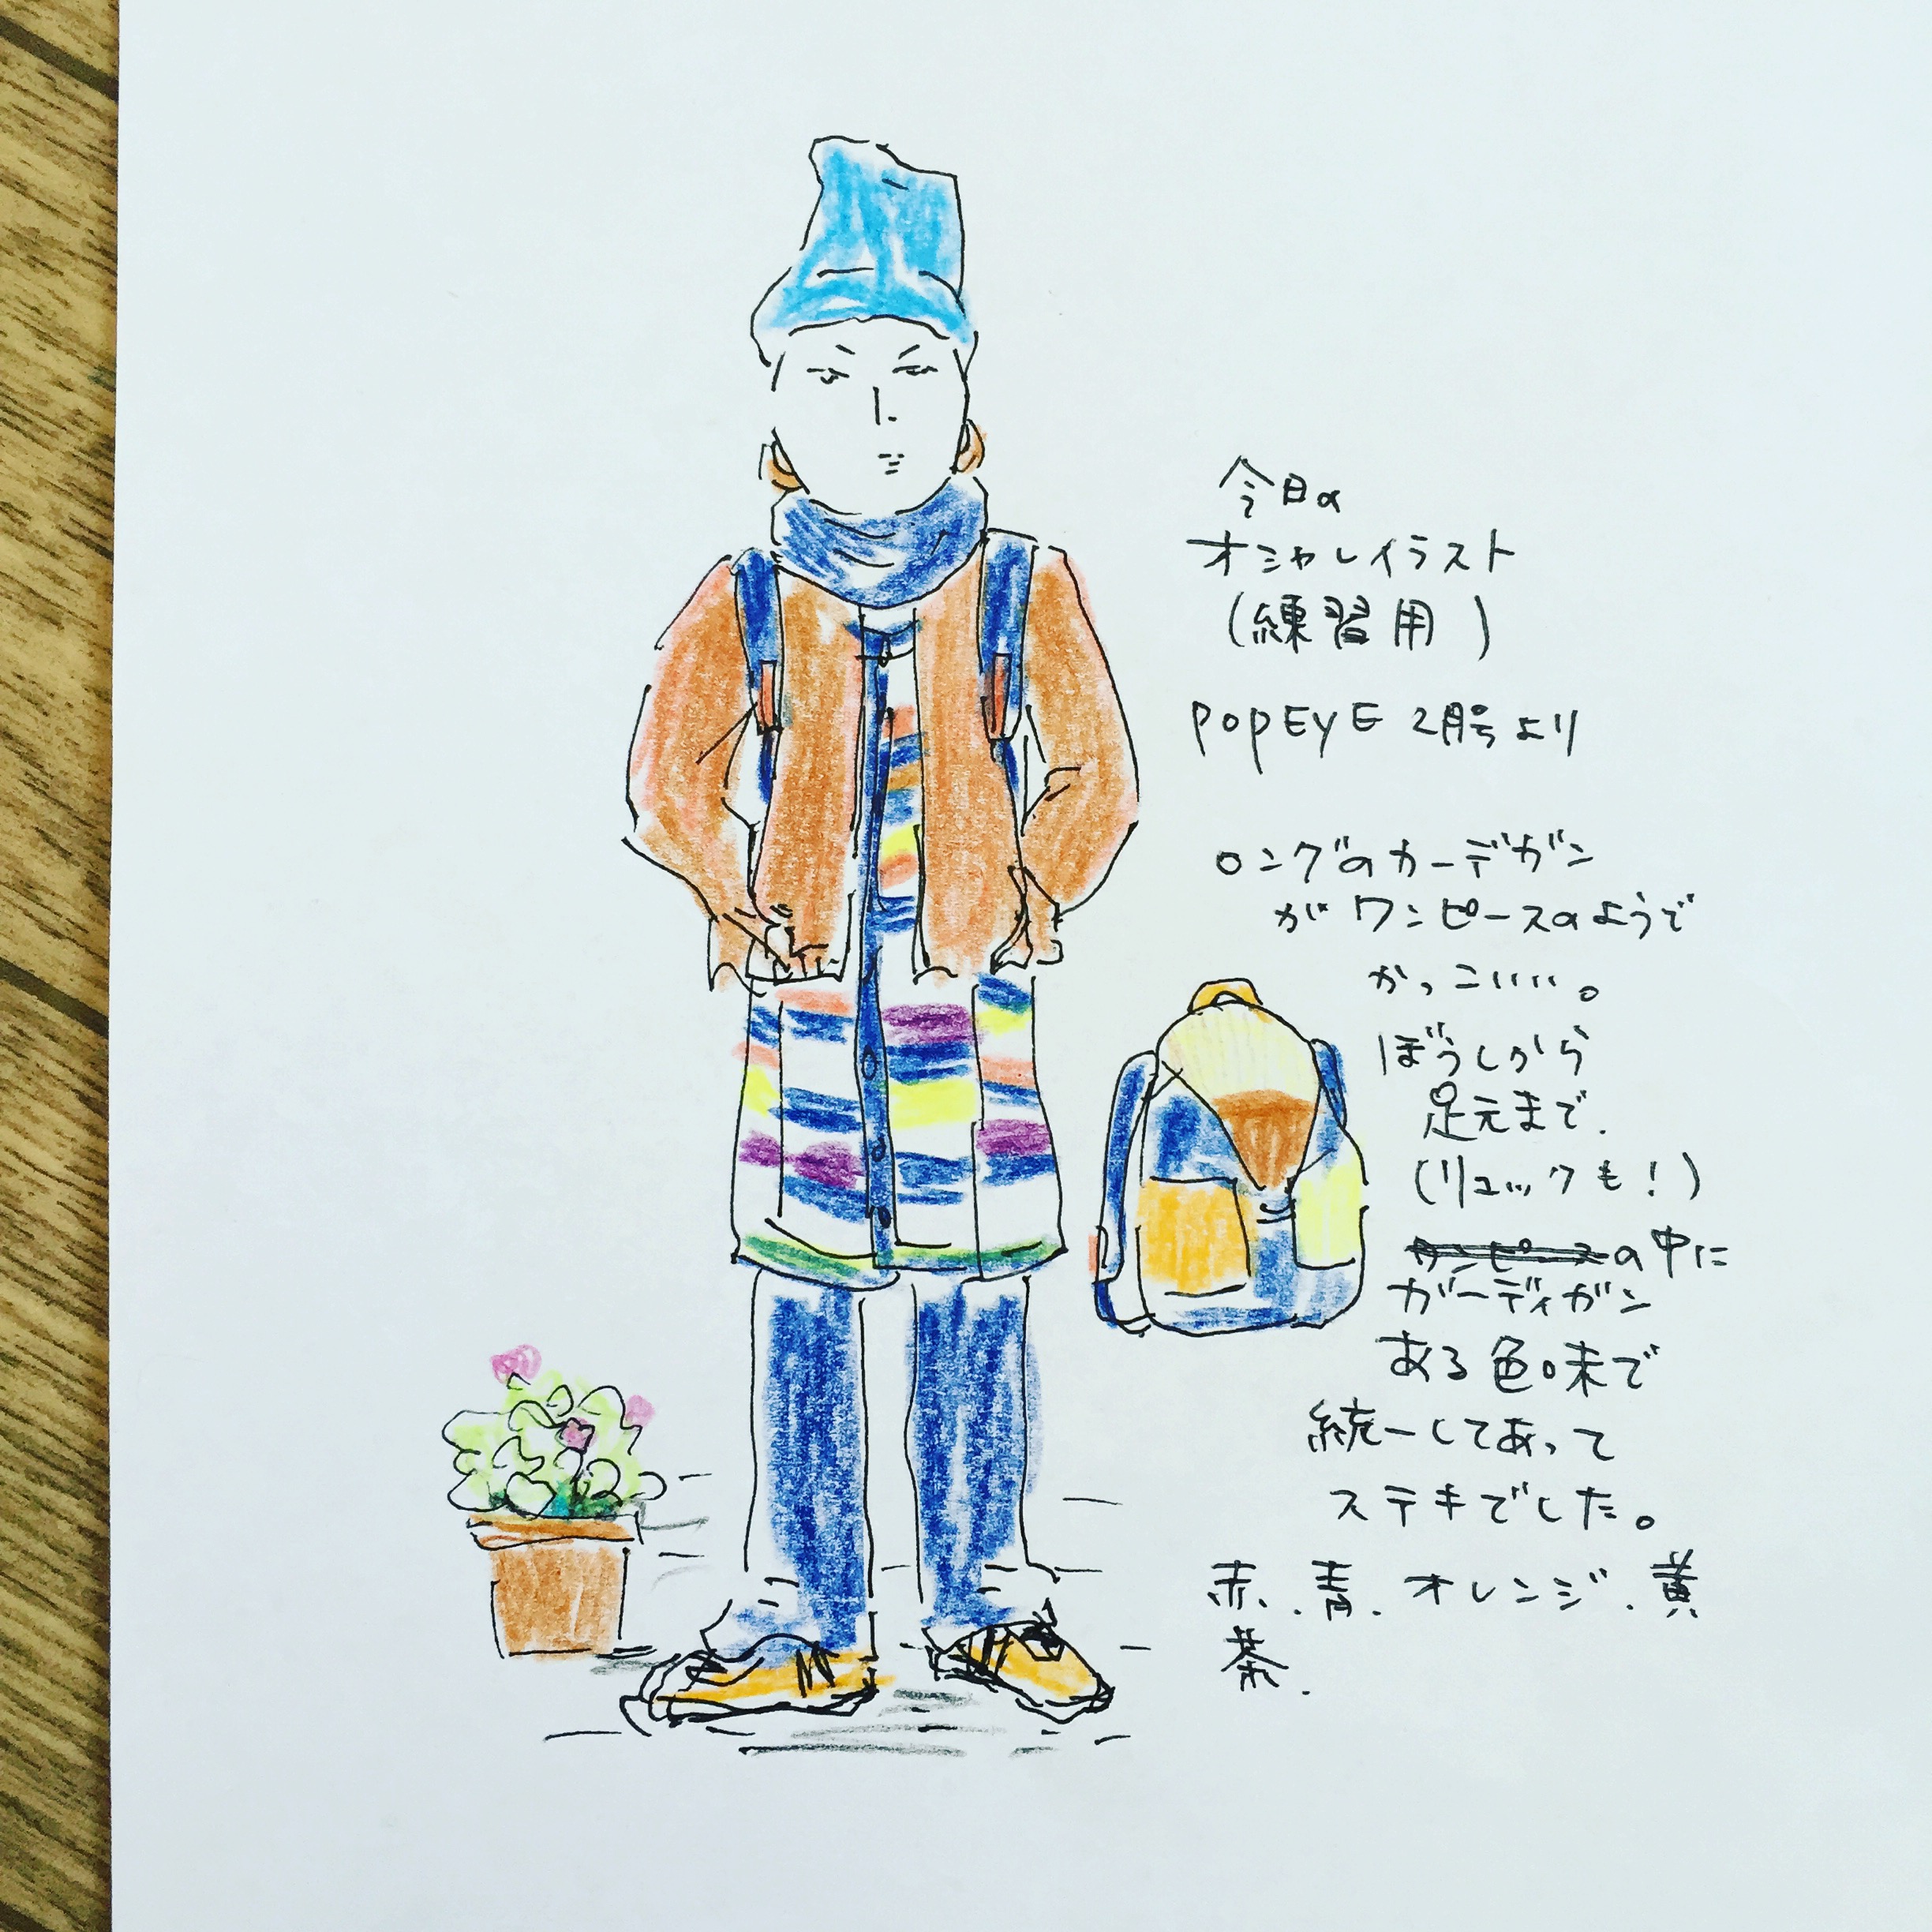 今日の
オシャレイラスト
(練習用)
POPEYE 2月号より
ロングのカーデガン
がワンピースのようで
かっこいいい。
ぼうしから
足元まで.
(リュックも!)
ワンピースの中に
ガーディガン
ある色味で
統一してあって
ステキでした。
赤.青.オレンジ.黄
茶.